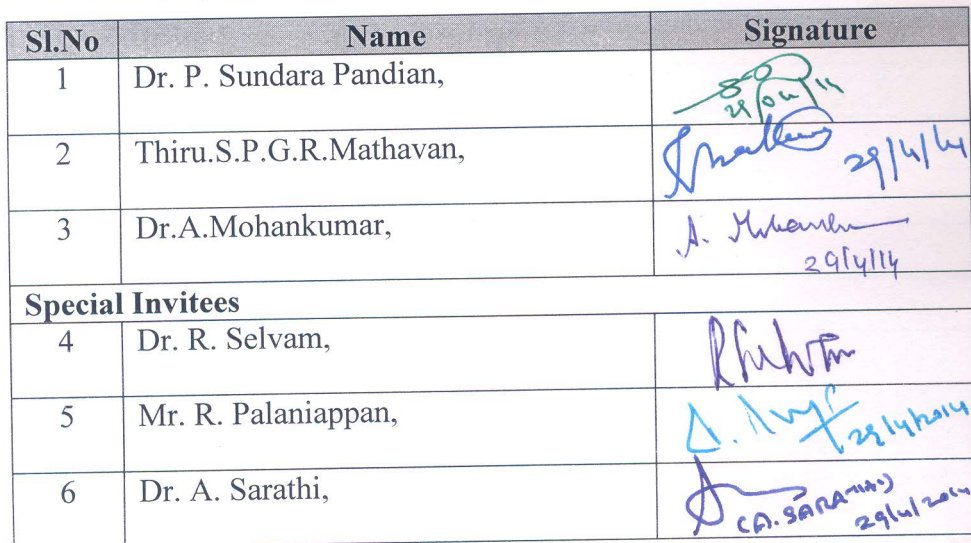 Sl.No Name Signature
1 Dr. P. Sundara Pandian,
29/04/14
2 Thiru.S.P.G.R.Mathavan,
29/4/14
3 Dr.A.Mohankumar,
A. Mohankumar
29/4/14
Special Invitees
4 Dr. R. Selvam,
5 Mr. R. Palaniappan,
29/4/2014
6 Dr. A. Sarathi,
(A. SARATHI)
29/4/2014